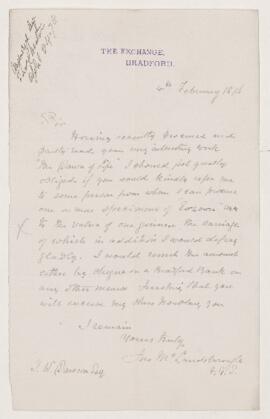 THE EXCHANGE,
BRADFORD.
4th February 1876
Sir
Having recently procured and
partly read your very interesting work
"The Dawn of Life" I should feel greatly
obliged if you would kindly refer me
to some person from whom I can procure
one or more specimens of "Eozoon"
to the value of one guinea the carriage
of which in addition I would defray
gladly. I would remit the amount
either by cheque on a Bradford Bank or
any other means. Trusting that you
will excuse my thus troubling you
I remain
Yours truly
Landsborough
J. W. Dawson Esq